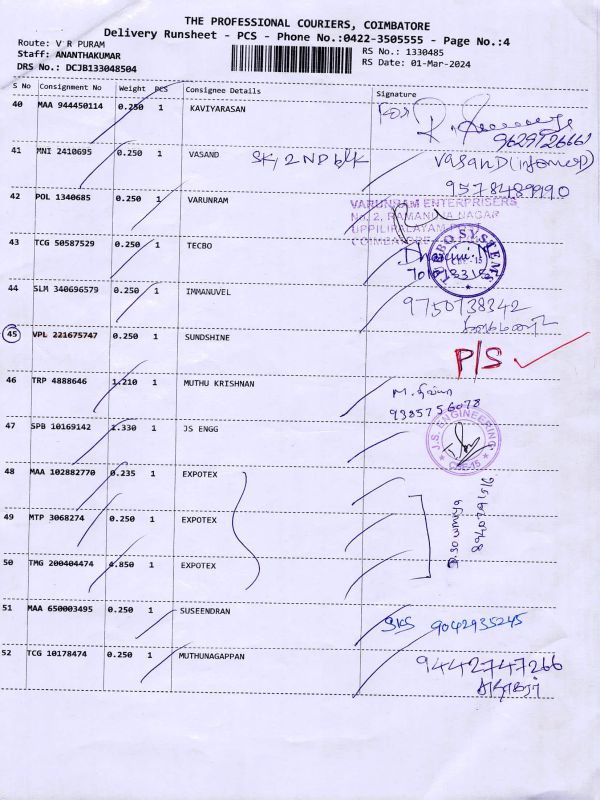 THE PROFESSIONAL COURIERS, COIMBATORE
Delivery Runsheet - PCS - Phone No.:0422-3505555 - Page No.:4
Route: V R PURAM
RS No.: 1330485
Staff: ANANTHAKUMAR
RS Date: 01-Mar-2024
DRS No.: DCJB133048504
S No Consignment No Weight PCS Consignee Details Signature
40 MAA 944450114 0.250 1 KAVIYARASAN
9629726661
41 MNI 2410695 0.250 1 VASAND SK, 2ND blk VASAND
9578489990
42 POL 1340685 0.250 1 VARUNRAM
VARUNRAM ENTERPRISERS
No. 2, RAMANUJA NAGAR
UPPILIPALAYAM
COIMBATORE
43 TCG 50587529 0.250 1 TECBO
TECBO SYSTEMS
44 SLM 340696579 0.250 1 IMMANUVEL 9750738342
45 VPL 221675747 0.250 1 SUNDSHINE P/S
46 TRP 4888646 1.210 1 MUTHU KRISHNAN
9385756078
47 SPB 10169142 1.330 1 JS ENGG
J.S. ENGINEERING
CBE-15
48 MAA 102882770 0.235 1 EXPOTEX
49 MTP 3068274 0.250 1 EXPOTEX
50 TMG 200404474 4.850 1 EXPOTEX
51 MAA 650003495 0.250 1 SUSEENDRAN SKS 9042935245
52 TCG 10178474 0.250 1 MUTHUNAGAPPAN 9442747266